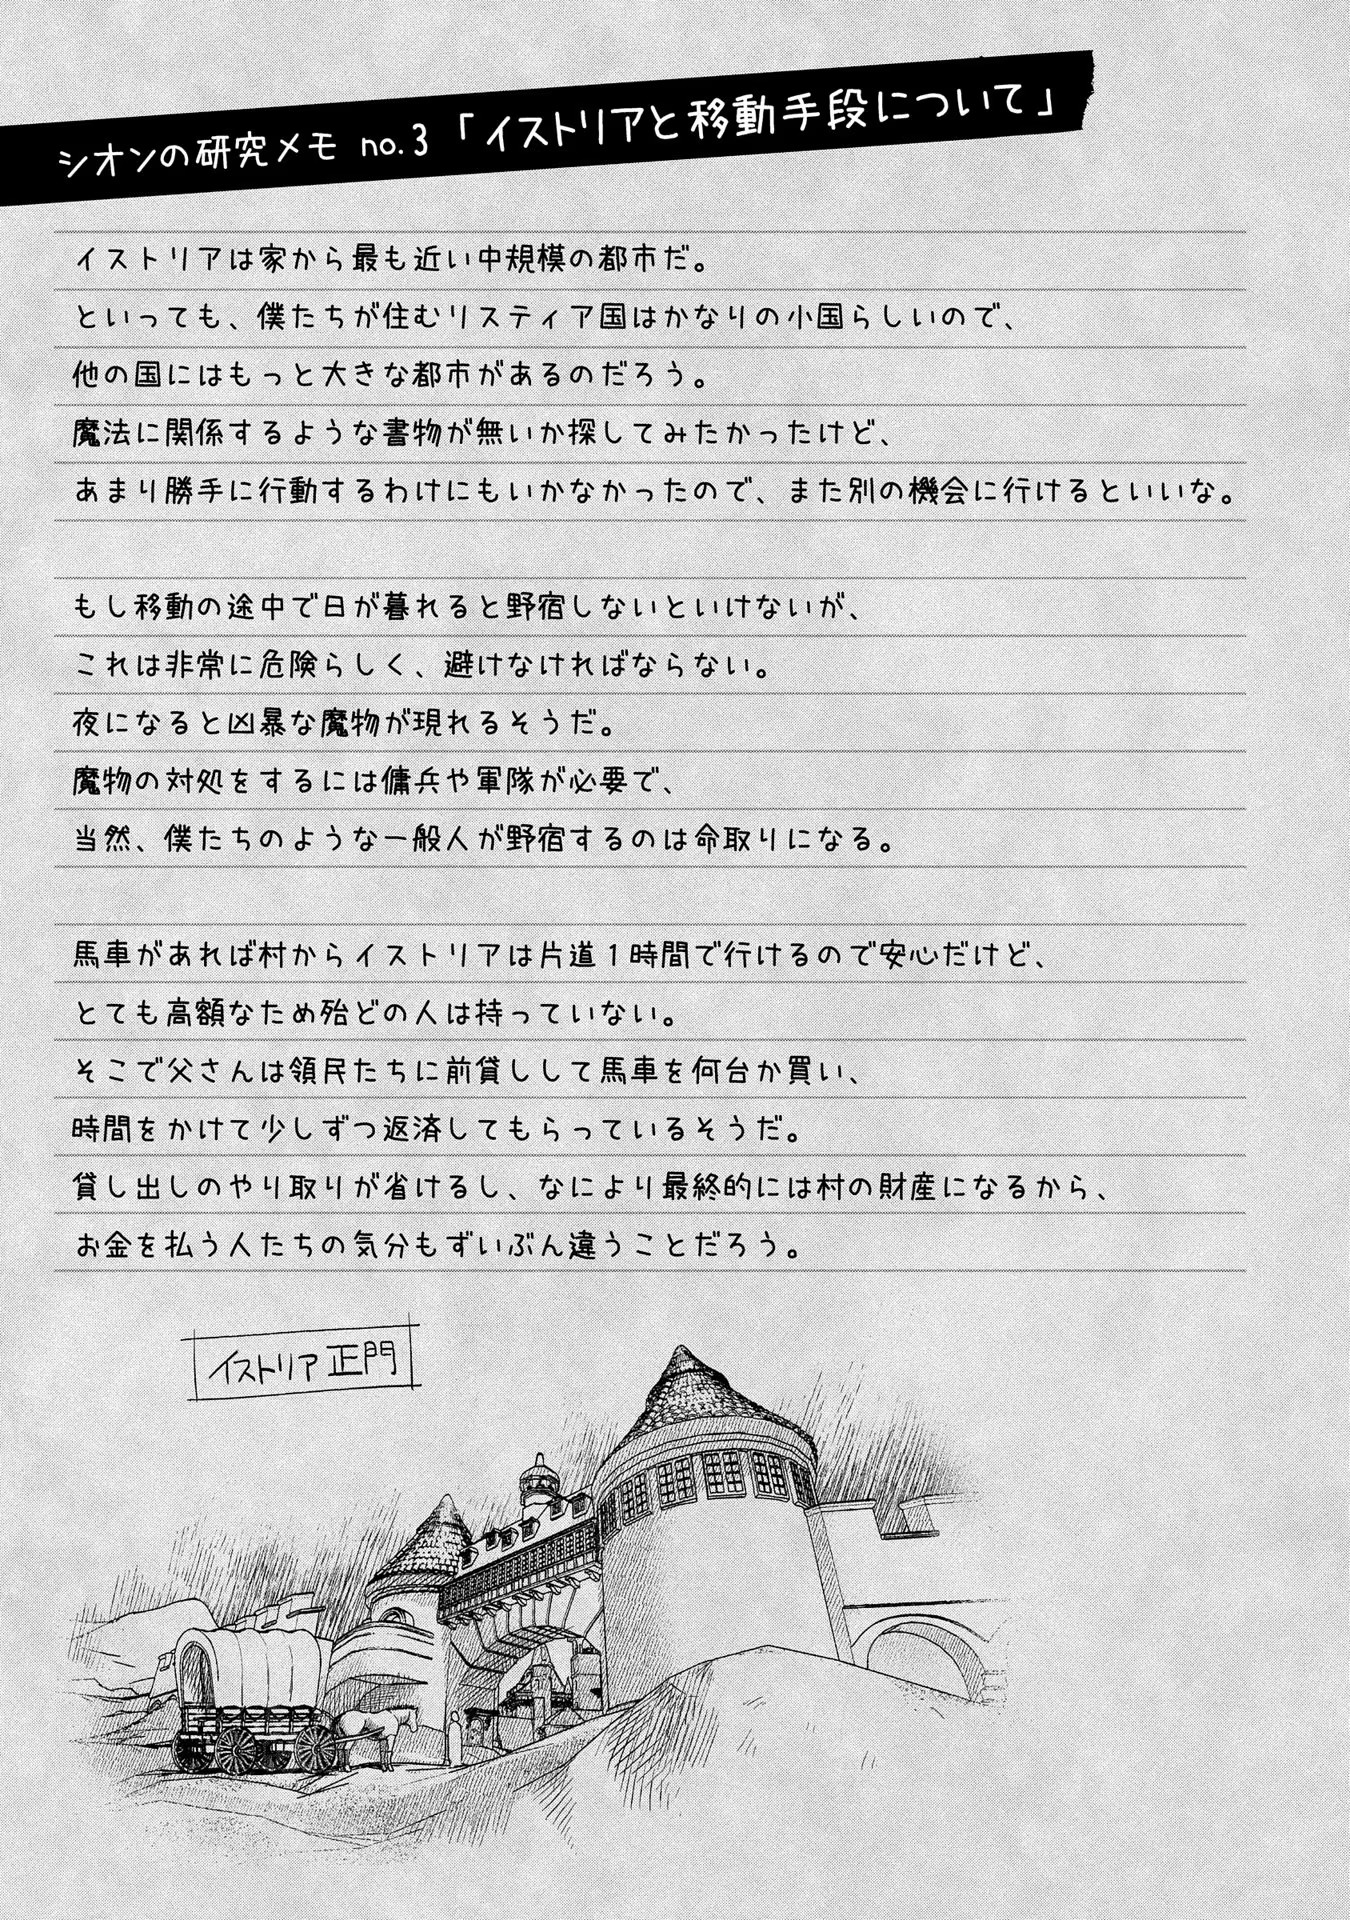 シオンの研究メモ no.3「イストリアと移動手段について」
イストリアは家から最も近い中規模の都市だ。
といっても、僕たちが住むリスティア国はかなりの小国らしいので、
他の国にはもっと大きな都市があるのだろう。
魔法に関係するような書物が無いか探してみたかったけど、
あまり勝手に行動するわけにもいかなかったので、また別の機会に行けるといいな。
もし移動の途中で日が暮れると野宿しないといけないが、
これは非常に危険らしく、避けなければならない。
夜になると凶暴な魔物が現れるそうだ。
魔物の対処をするには傭兵や軍隊が必要で、
当然、僕たちのような一般人が野宿するのは命取りになる。
馬車があれば村からイストリアは片道1時間で行けるので安心だけど、
とても高額なため殆どの人は持っていない。
そこで父さんは領民たちに前貸しして馬車を何台か買い、
時間をかけて少しずつ返済してもらっているそうだ。
貸し出しのやり取りが省けるし、なにより最終的には村の財産になるから、
お金を払う人たちの気分もずいぶん違うことだろう。
イストリア正門